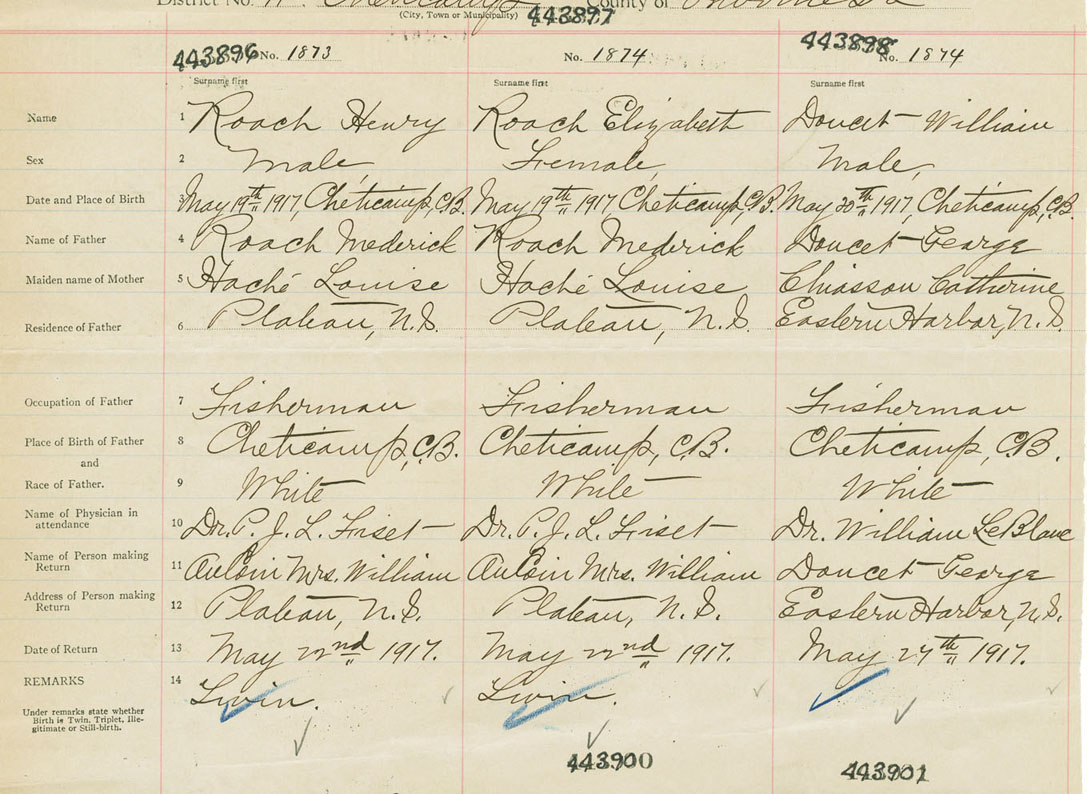 District No. (City, Town or Municipality) 443897 County of
443896 No. 1873 No. 1874 443898 No. 1874
Surname first Surname first Surname first
Name 1 Roach Henry Roach Elizabeth Doucet William
Sex 2 Male, Female, Male,
Date and Place of Birth 3 May 19th 1917, Cheticamp, C.B. May 19th 1917, Cheticamp, C.B. May 20th 1917, Cheticamp, C.B.
Name of Father 4 Roach Mederick Roach Mederick Doucet George
Maiden name of Mother 5 Haché Louise Haché Louise Chiasson Catherine
Residence of Father 6 Plateau, N.S. Plateau, N.S. Eastern Harbor, N.S.
Occupation of Father 7 Fisherman Fisherman Fisherman
Place of Birth of Father 8 Cheticamp, C.B. Cheticamp, C.B. Cheticamp, C.B.
and
Race of Father. 9 White White White
Name of Physician in
attendance 10 Dr. P. J. L. Fiset Dr. P. J. L. Fiset Dr. William LeBlanc
Name of Person making
Return 11 AuCoin Mrs. William AuCoin Mrs. William Doucet George
Address of Person making
Return 12 Plateau, N.S. Plateau, N.S. Eastern Harbor, N.S.
Date of Return 13 May 22nd 1917. May 22nd 1917. May 27th 1917.
REMARKS 14 Twin. Twin.
Under remarks state whether
Birth is Twin, Triplet, Ille-
gitimate or Still-birth.
443900 443901